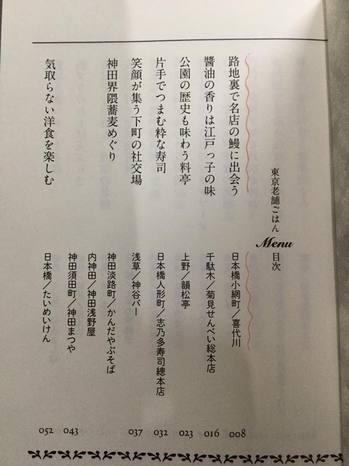 東京老舗ごはん Menu 目次
路地裏で名店の鰻に出会う 日本橋小網町／喜代川 008
醬油の香りは江戸っ子の味 千駄木／菊見せんべい総本店 016
公園の歴史も味わう料亭 上野／韻松亭 023
片手でつまむ粋な寿司 日本橋人形町／志乃多寿司總本店 032
笑顔が集う下町の社交場 浅草／神谷バー 037
神田界隈蕎麦めぐり 神田淡路町／かんだやぶそば
内神田／神田浅野屋
神田須田町／神田まつや 043
気取らない洋食を楽しむ 日本橋／たいめいけん 052